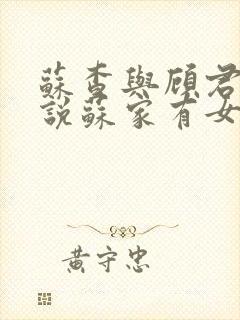 蘇杳與顧君
說蘇家有女
黃守忠